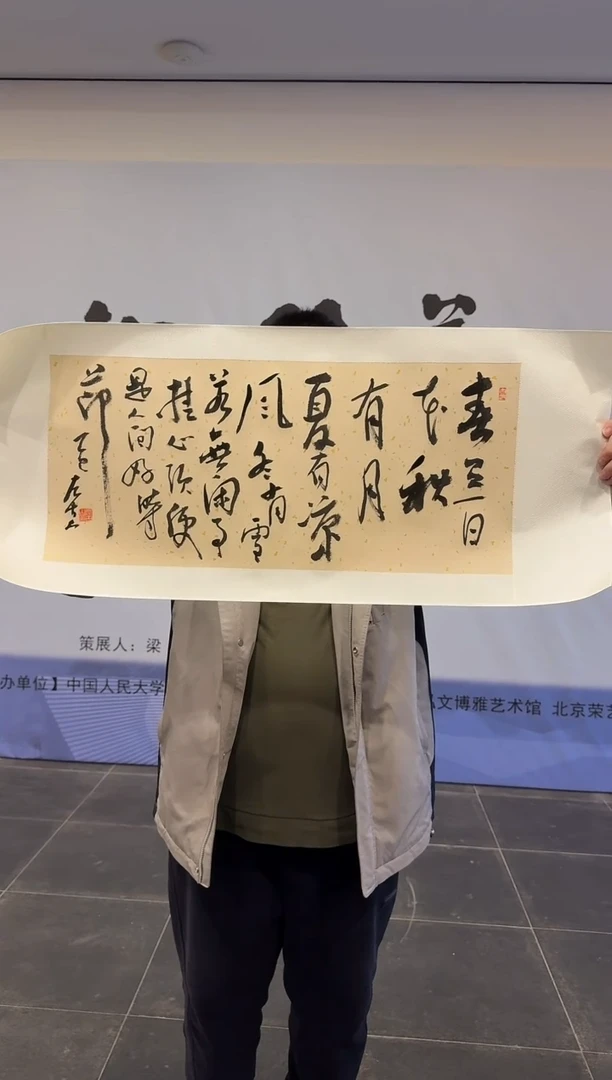 春有百
花秋
有月
夏有凉
风冬有雪
若無闲事
挂心头便
是人间好时
節
策展人：梁
办单位】中国人民大学
文博雅艺术馆 北京荣